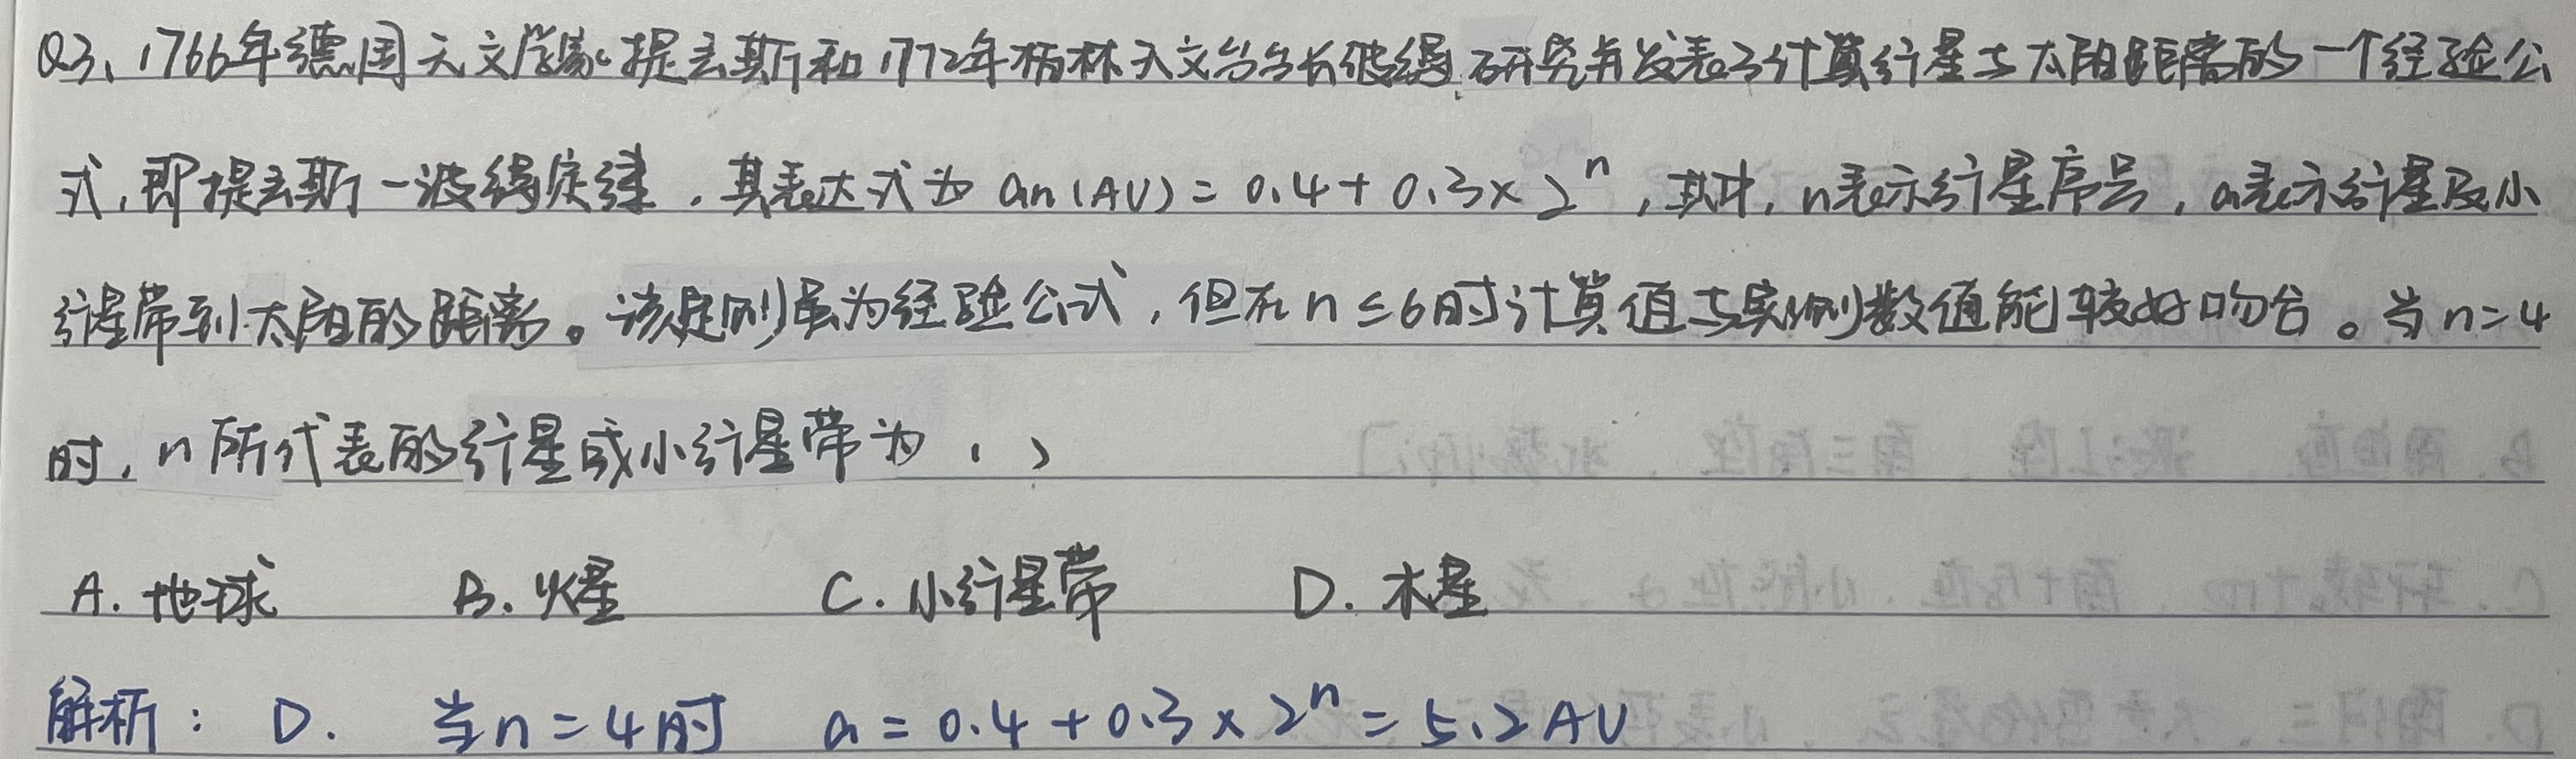 Q3、1766年德国天文学家提丢斯和1772年柏林天文台台长波得研究并发表了计算行星与太阳距离的一个经验公
式,即提丢斯-波得定律,其表达式为 an(AU)=0.4+0.3×2ⁿ,其中,n表示行星序号,a表示行星及小
行星带到太阳的距离。该定则虽为经验公式,但在n≤6时计算值与实测数值能较好吻合。当n=4
时,n所代表的行星或小行星带为( )
A.地球 B.火星 C.小行星带 D.木星
解析: D. 当n=4时 a=0.4+0.3×2ⁿ=5.2AU